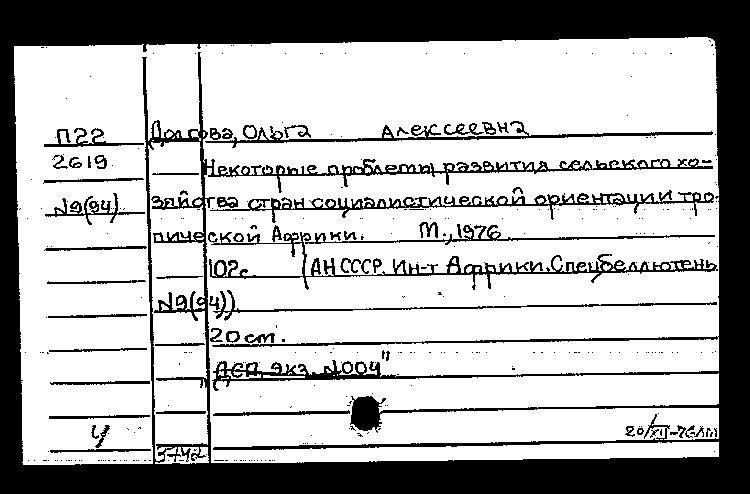 П22 Долгова, Ольга Алексеевна
2619 Некоторые проблемы развития сельского хо-
N9(94) зяйства стран социалистической ориентации тро-
пической Африки. М., 1976
102с. (АН СССР. Ин-т Африки. Спецбеллютень
N9(94))
20 см.
"ДСП, экз. N004"
Ч 20/XII-76